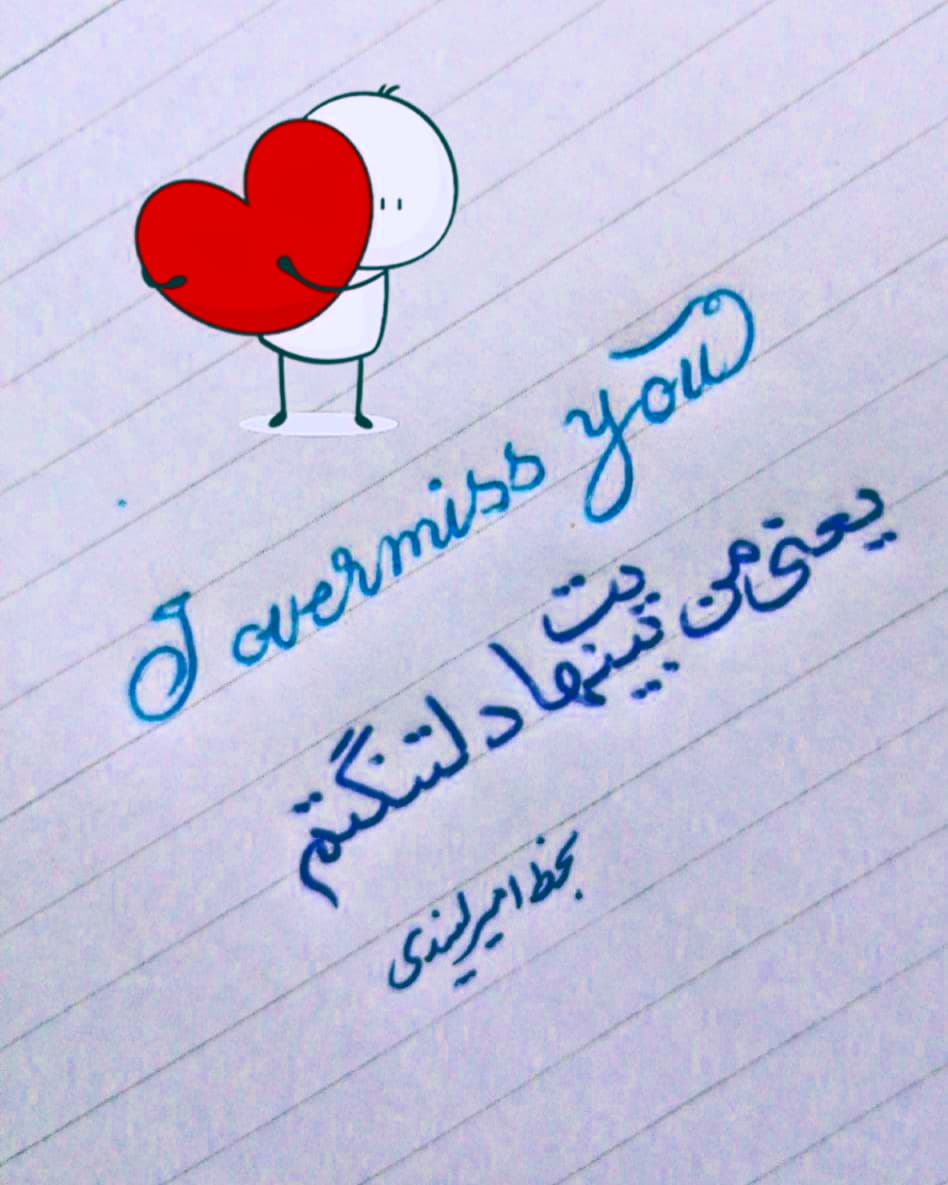 I overmiss you
یعنی من بینهایت دلتنگتم
بخط امیر